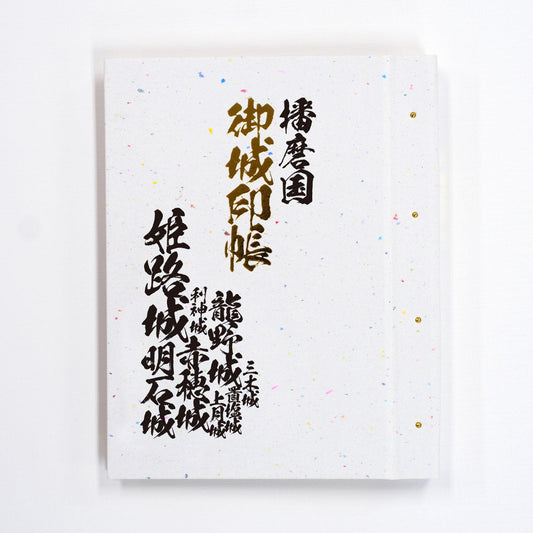 播磨国
御城印帳
三木城
置塩城
上月城
龍野城
利神城
赤穂城
姫路城
明石城